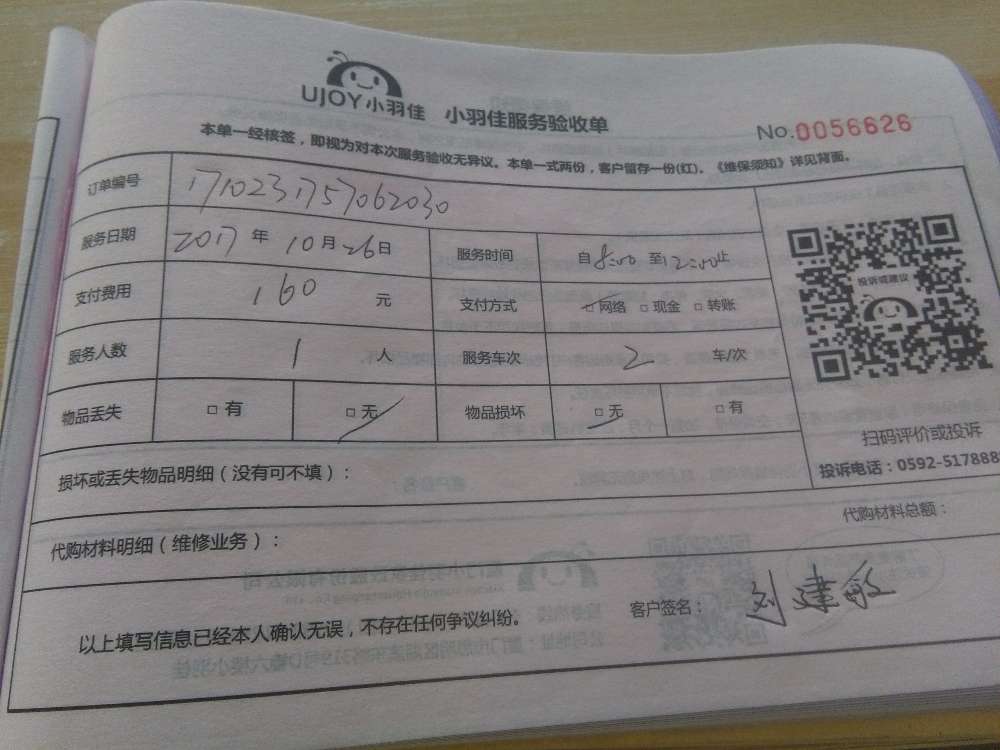 UJOY小羽佳 小羽佳服务验收单
No.0056626
本单一经核签，即视为对本次服务验收无异议。本单一式两份，客户留存一份(红)。《维保须知》详见背面。
订单编号 1710231757062030
服务日期 2017 年 10 月 26 日 服务时间 自 8:00 至 12:00 止
支付费用 160 元 支付方式 □ 网络 □ 现金 □ 转账
服务人数 1 人 服务车次 2 车/次
物品丢失 □ 有 □ 无 物品损坏 □ 无 □ 有
投诉或建议
扫码评价或投诉
投诉电话：0592-517888
损坏或丢失物品明细（没有可不填）：
代购材料明细（维修业务）：
代购材料总额：
以上填写信息已经本人确认无误，不存在任何争议纠纷。
客户签名： 刘建敏